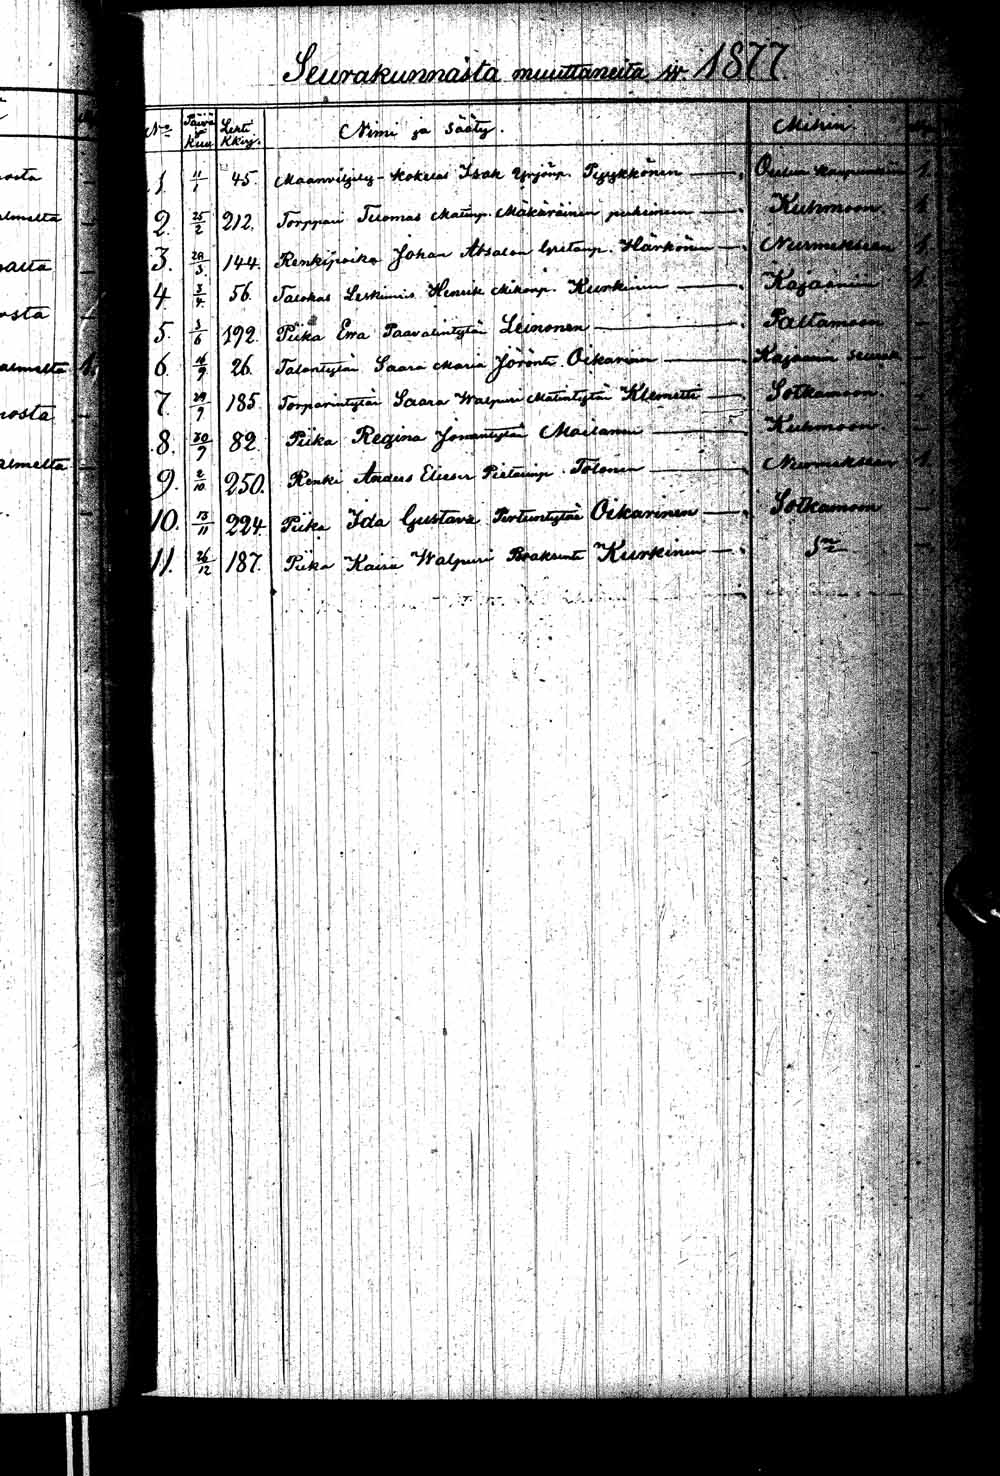 Seurakunnasta muuttaneita v. 1877
No Päivä ja Kuu Lehti K.kirj. Nimi ja Sääty. Mihin.
1. 11/1 45. Maanviljely-kokelas Isak Yrjönp. Pyykkönen — Oulun kaupunkiin 1.
2. 25/2 212. Torppari Tuomas Matinp. Mäkäräinen puolineen — Kuhmoon 1
3. 28/3 144. Renkipoika Johan Absalon Grelsnp. Härkönen — Nurmekseen 1.
4 3/4. 56. Talokas Leskimies Henrik Mikonp. Kurkinen — Kajaaniin 1.
5. 3/6 192. Piika Eva Paavalintytär Leinonen — Paltamoon —
6. 16/9 26. Talontytär Saara Maria Jörönt. Oikarinen — Kajaanin seurak
7. 29/9 185 Torparintytär Saara Walpuri Matintytär Klemetti — Sotkamoon. —
8. 30/9 82. Piika Regina Jonantytär Moilanen — Kuhmoon. —
9. 2/10 250. Renki Anders Elieser Pietarinp. Tolonen — Nurmekseen 1
10. 13/11 224. Piika Ida Gustava Pertuntytär Oikarinen — Sotkamoon —
11. 26/12 187. Piika Kaisa Walpuri Kurkinen — —
osta —
almelta —
—
osta —
almelta 1.
osta —
almelta —